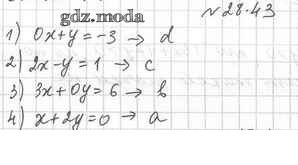 gdz.moda
№28.43
1) 0x+y=-3 → d
2) 2x-y=1 → c
3) 3x+0y=6 → b
4) x+2y=0 → a